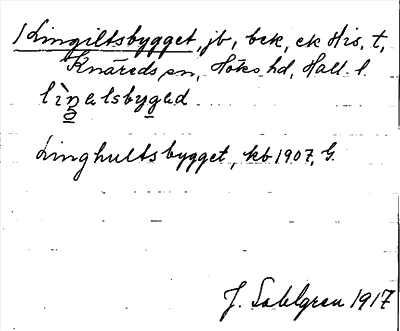 /Lingiltsbygget, jb, bek, ek His, t,
Knäreds sn, Höks hd, Hall. l.
lìŋəlsbygəd
Linghultsbygget, kb 1907, G.
J. Sahlgren 1917